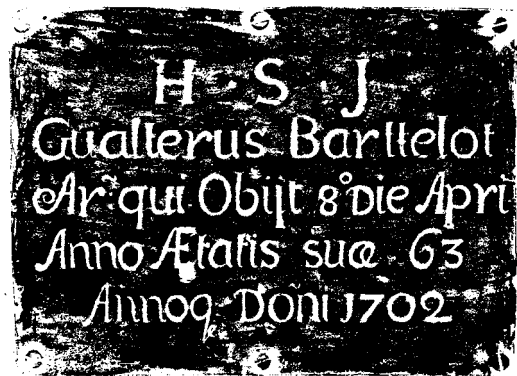 H · S · J
Gualterus Barttelot
Ar: qui Obijt 8º Die Apri
Anno Ætatis suæ 63
Annoq Doni 1702